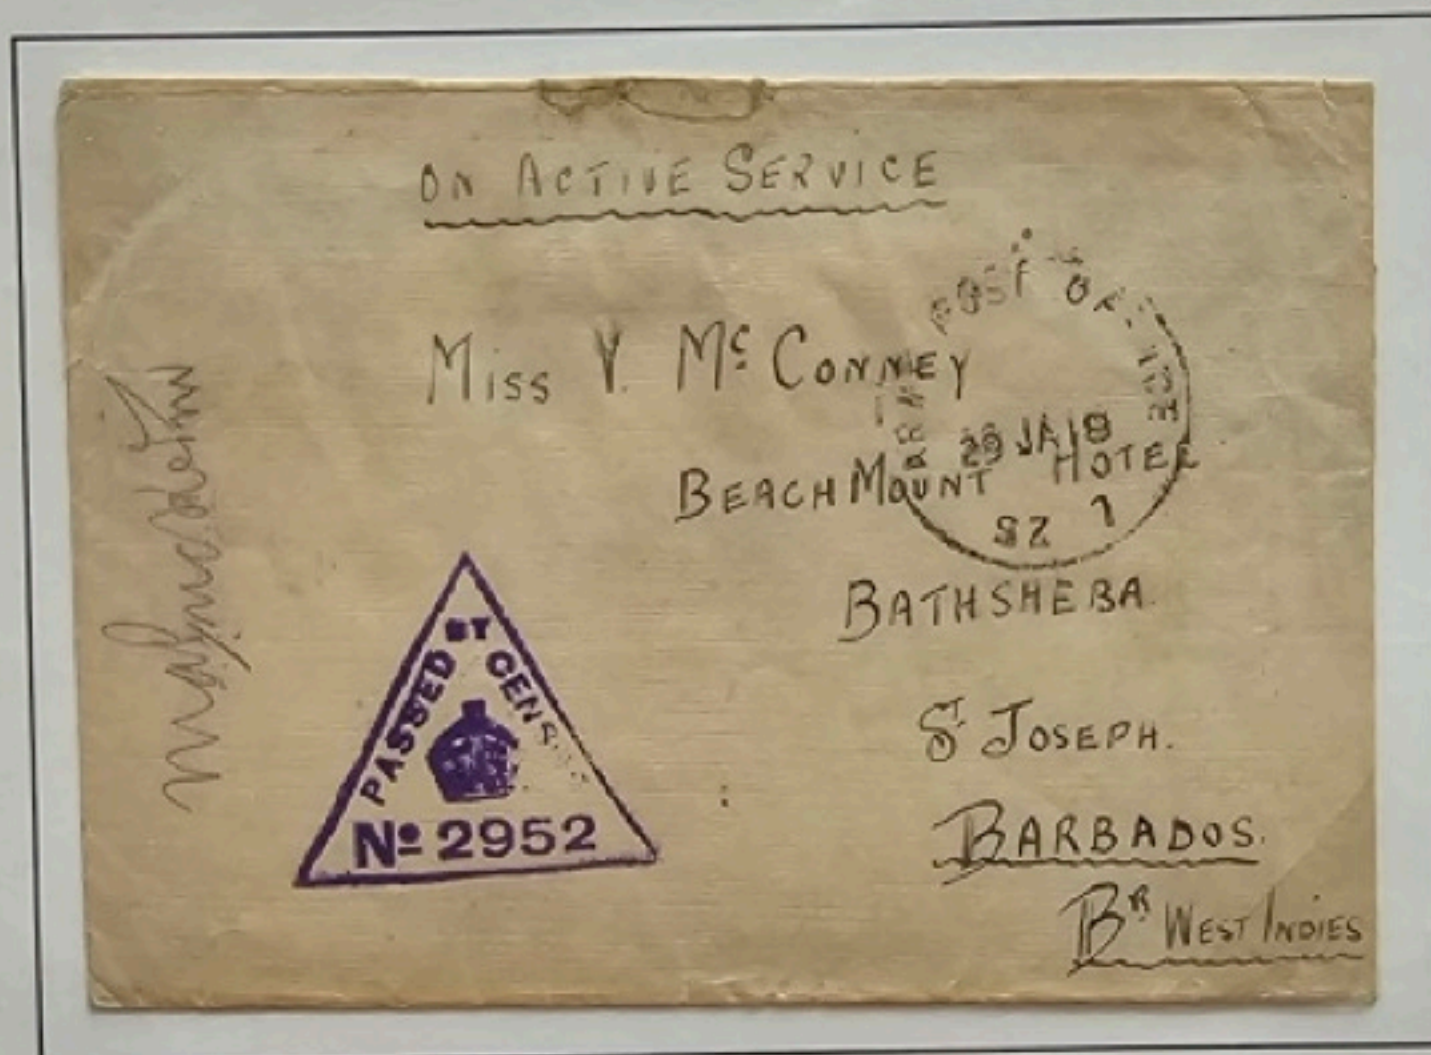 ON ACTIVE SERVICE
Miss V. Mc Conney
Beach Mount Hotel
Bathsheba
St Joseph.
Barbados.
Br West Indies
ARMY POST OFFICE
29 JA 18
SZ 7
PASSED BY CENSOR
No 2952